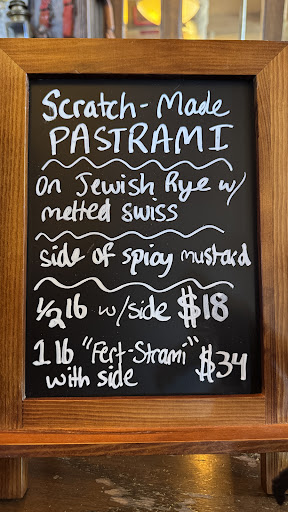 Scratch-Made
PASTRAMI
on Jewish Rye w/
melted swiss
side of spicy mustard
1/2 lb w/side $18
1 lb "Fert-Strami" $34
with side